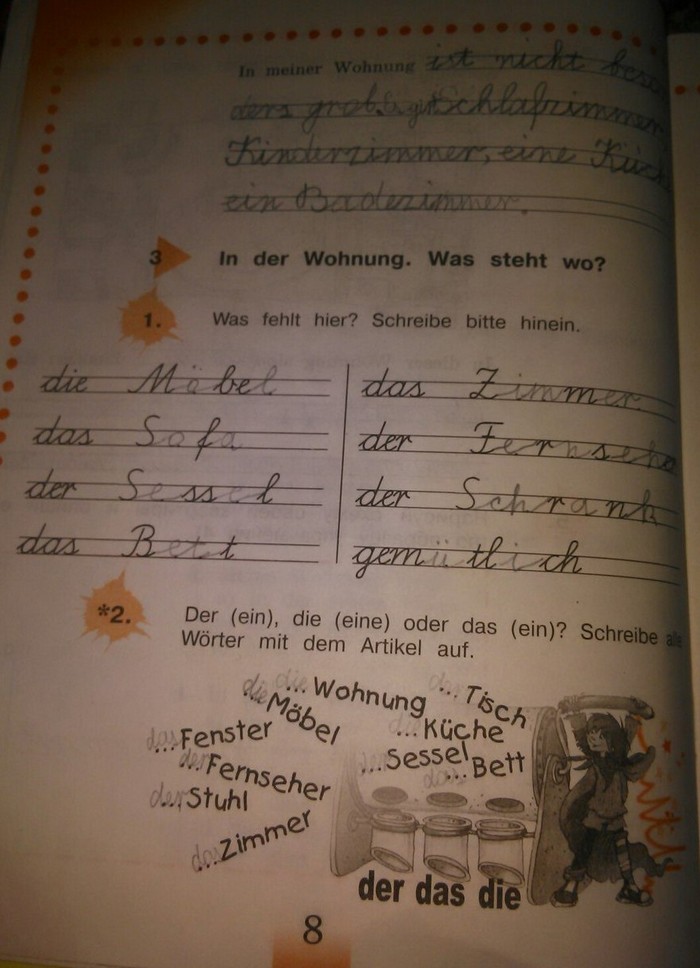 In meiner Wohnung ist nicht beson
ders groß. Schlafzimmer
Kinderzimmer, eine Küch
ein Badezimmer.
3 In der Wohnung. Was steht wo?
1. Was fehlt hier? Schreibe bitte hinein.
die Möbel
das Sofa
der Sessel
das Bett
das Zimmer
der Fernsehe
der Schrank
gemütlich
*2. Der (ein), die (eine) oder das (ein)? Schreibe alle
Wörter mit dem Artikel auf.
die ... Wohnung
... Tisch
die ... Möbel
die ... Küche
das ... Fenster
... Sessel
der ... Fernseher
das ... Bett
der ... Stuhl
das ... Zimmer
der das die
8